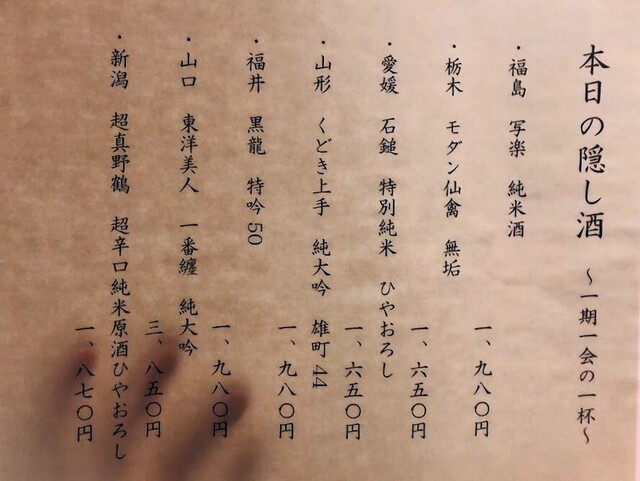 本日の隠し酒 ～一期一会の一杯～
・福島 写楽 純米酒
一、九八〇円
・栃木 モダン仙禽 無垢
一、六五〇円
・愛媛 石鎚 特別純米 ひやおろし
一、六五〇円
・山形 くどき上手 純大吟 雄町44
一、九八〇円
・福井 黒龍 特吟50
一、九八〇円
・山口 東洋美人 一番纏 純大吟
三、八五〇円
・新潟 超真野鶴 超辛口純米原酒ひやおろし
一、八七〇円